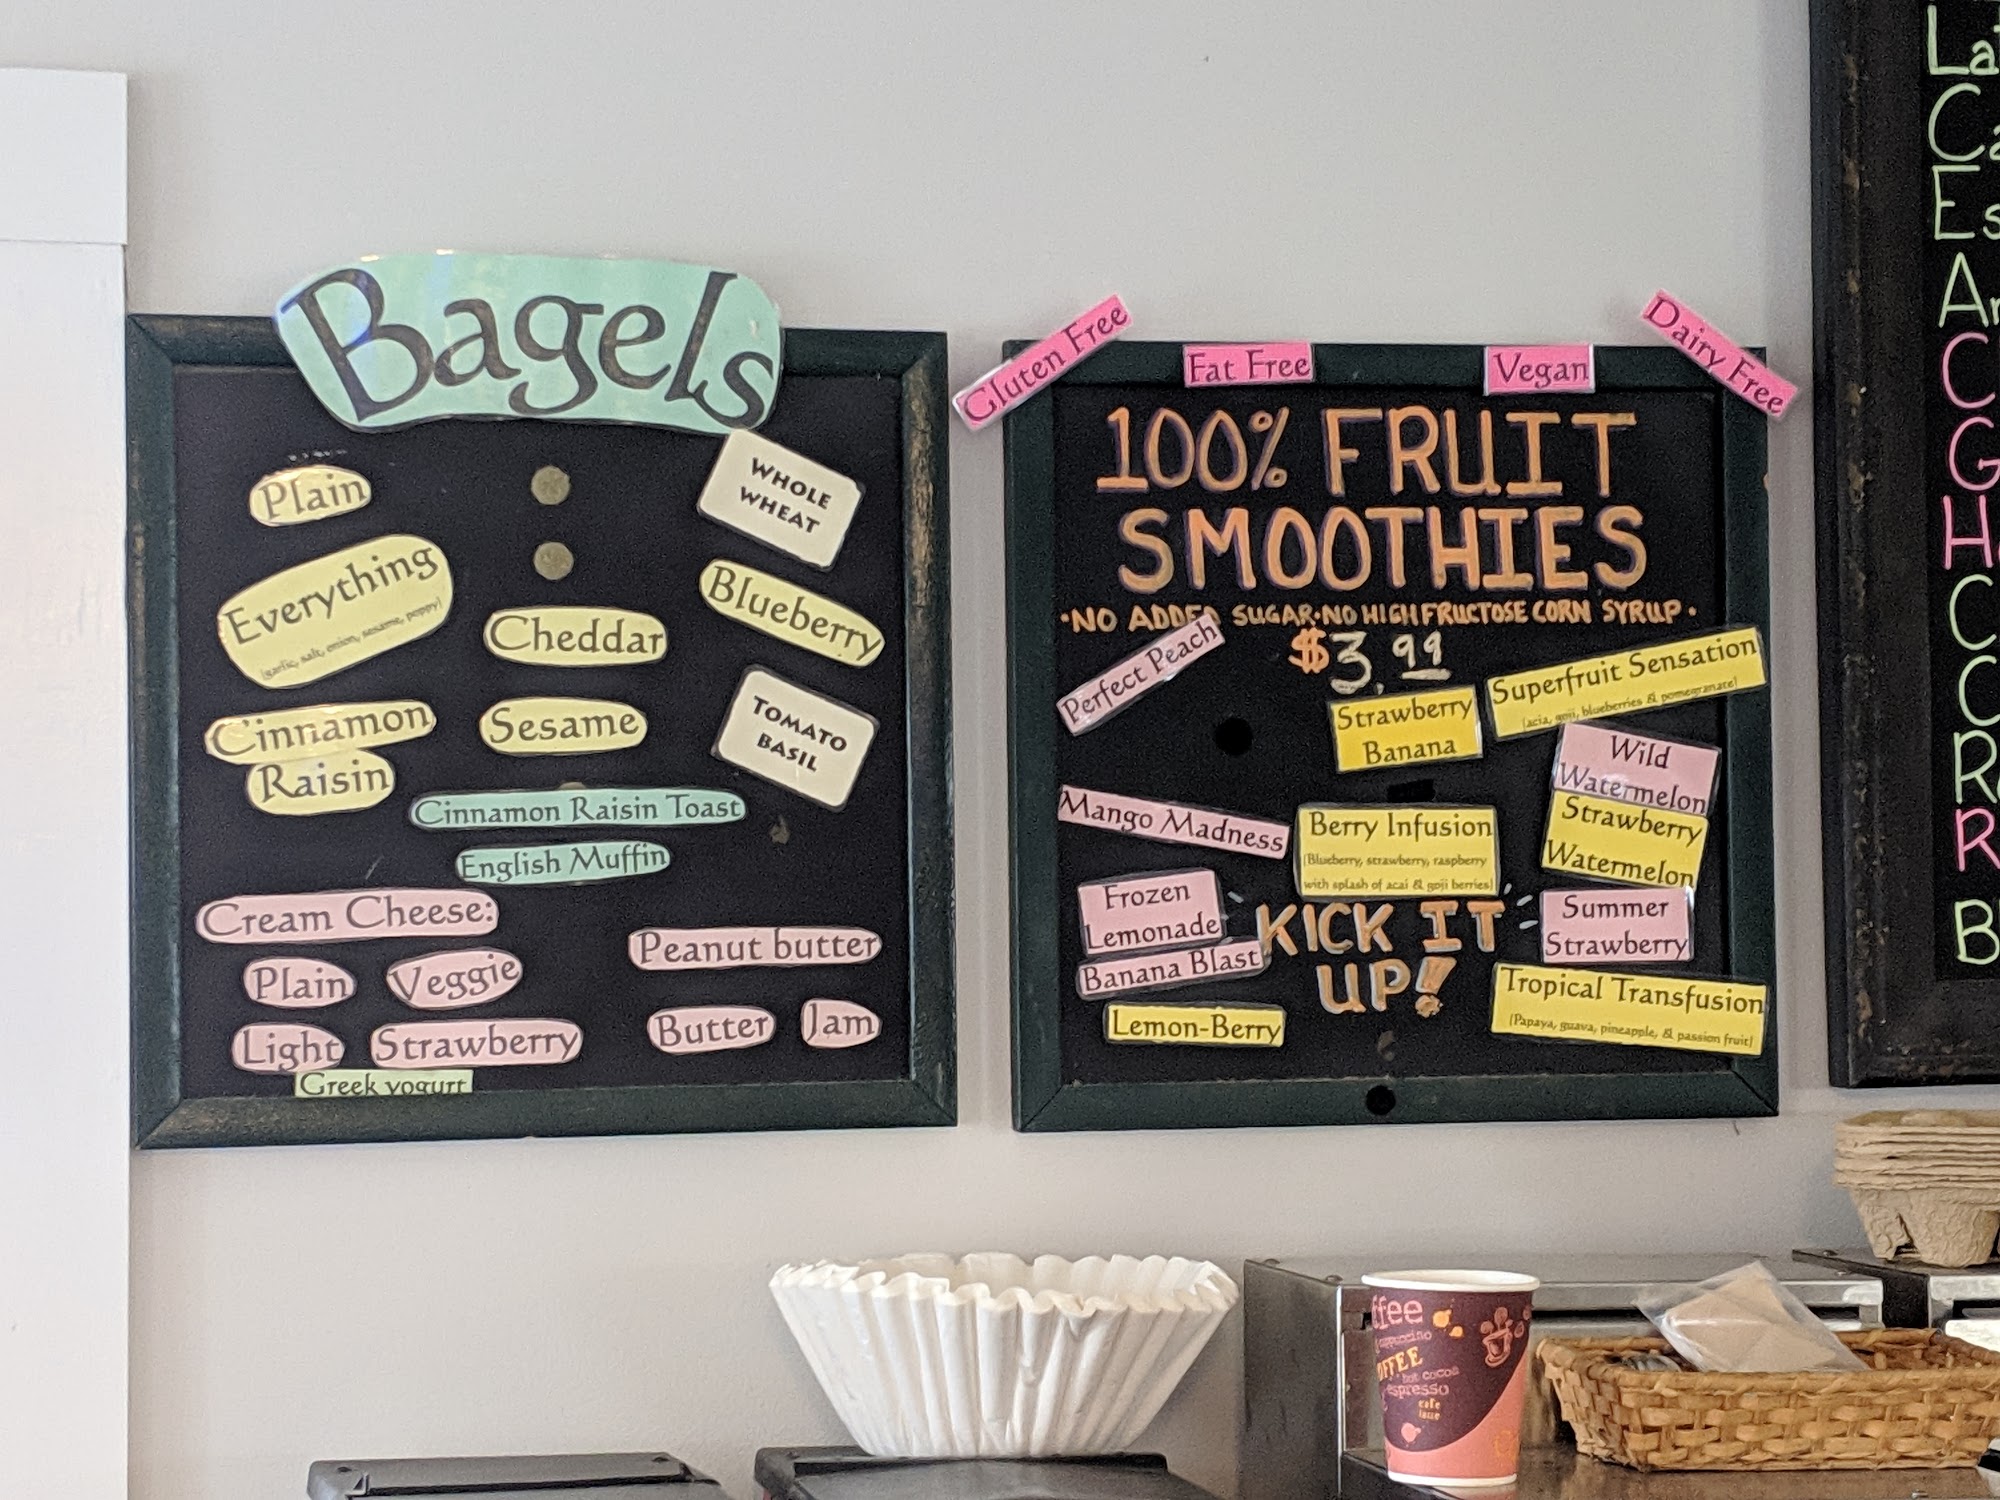 Bagels
Plain
WHOLE
WHEAT
Everything
(garlic, salt, onion, sesame, poppy)
Cheddar
Blueberry
Cinnamon
Raisin
Sesame
TOMATO
BASIL
Cinnamon Raisin Toast
English Muffin
Cream Cheese:
Plain
Veggie
Light
Strawberry
Greek yogurt
Peanut butter
Butter
Jam
Gluten Free
Fat Free
Vegan
Dairy Free
100% FRUIT
SMOOTHIES
·NO ADDED SUGAR·NO HIGH FRUCTOSE CORN SYRUP·
$3.99
Perfect Peach
Strawberry
Banana
Superfruit Sensation
(acia, goji, blueberries & pomegranate)
Wild
Watermelon
Mango Madness
Berry Infusion
(Blueberry, strawberry, raspberry
with splash of acai & goji berries)
Strawberry
Watermelon
Frozen
Lemonade
KICK IT
UP!
Summer
Strawberry
Banana Blast
Lemon-Berry
Tropical Transfusion
(Papaya, guava, pineapple, & passion fruit)
cappuccino
hot cocoa
espresso
cafe
latte